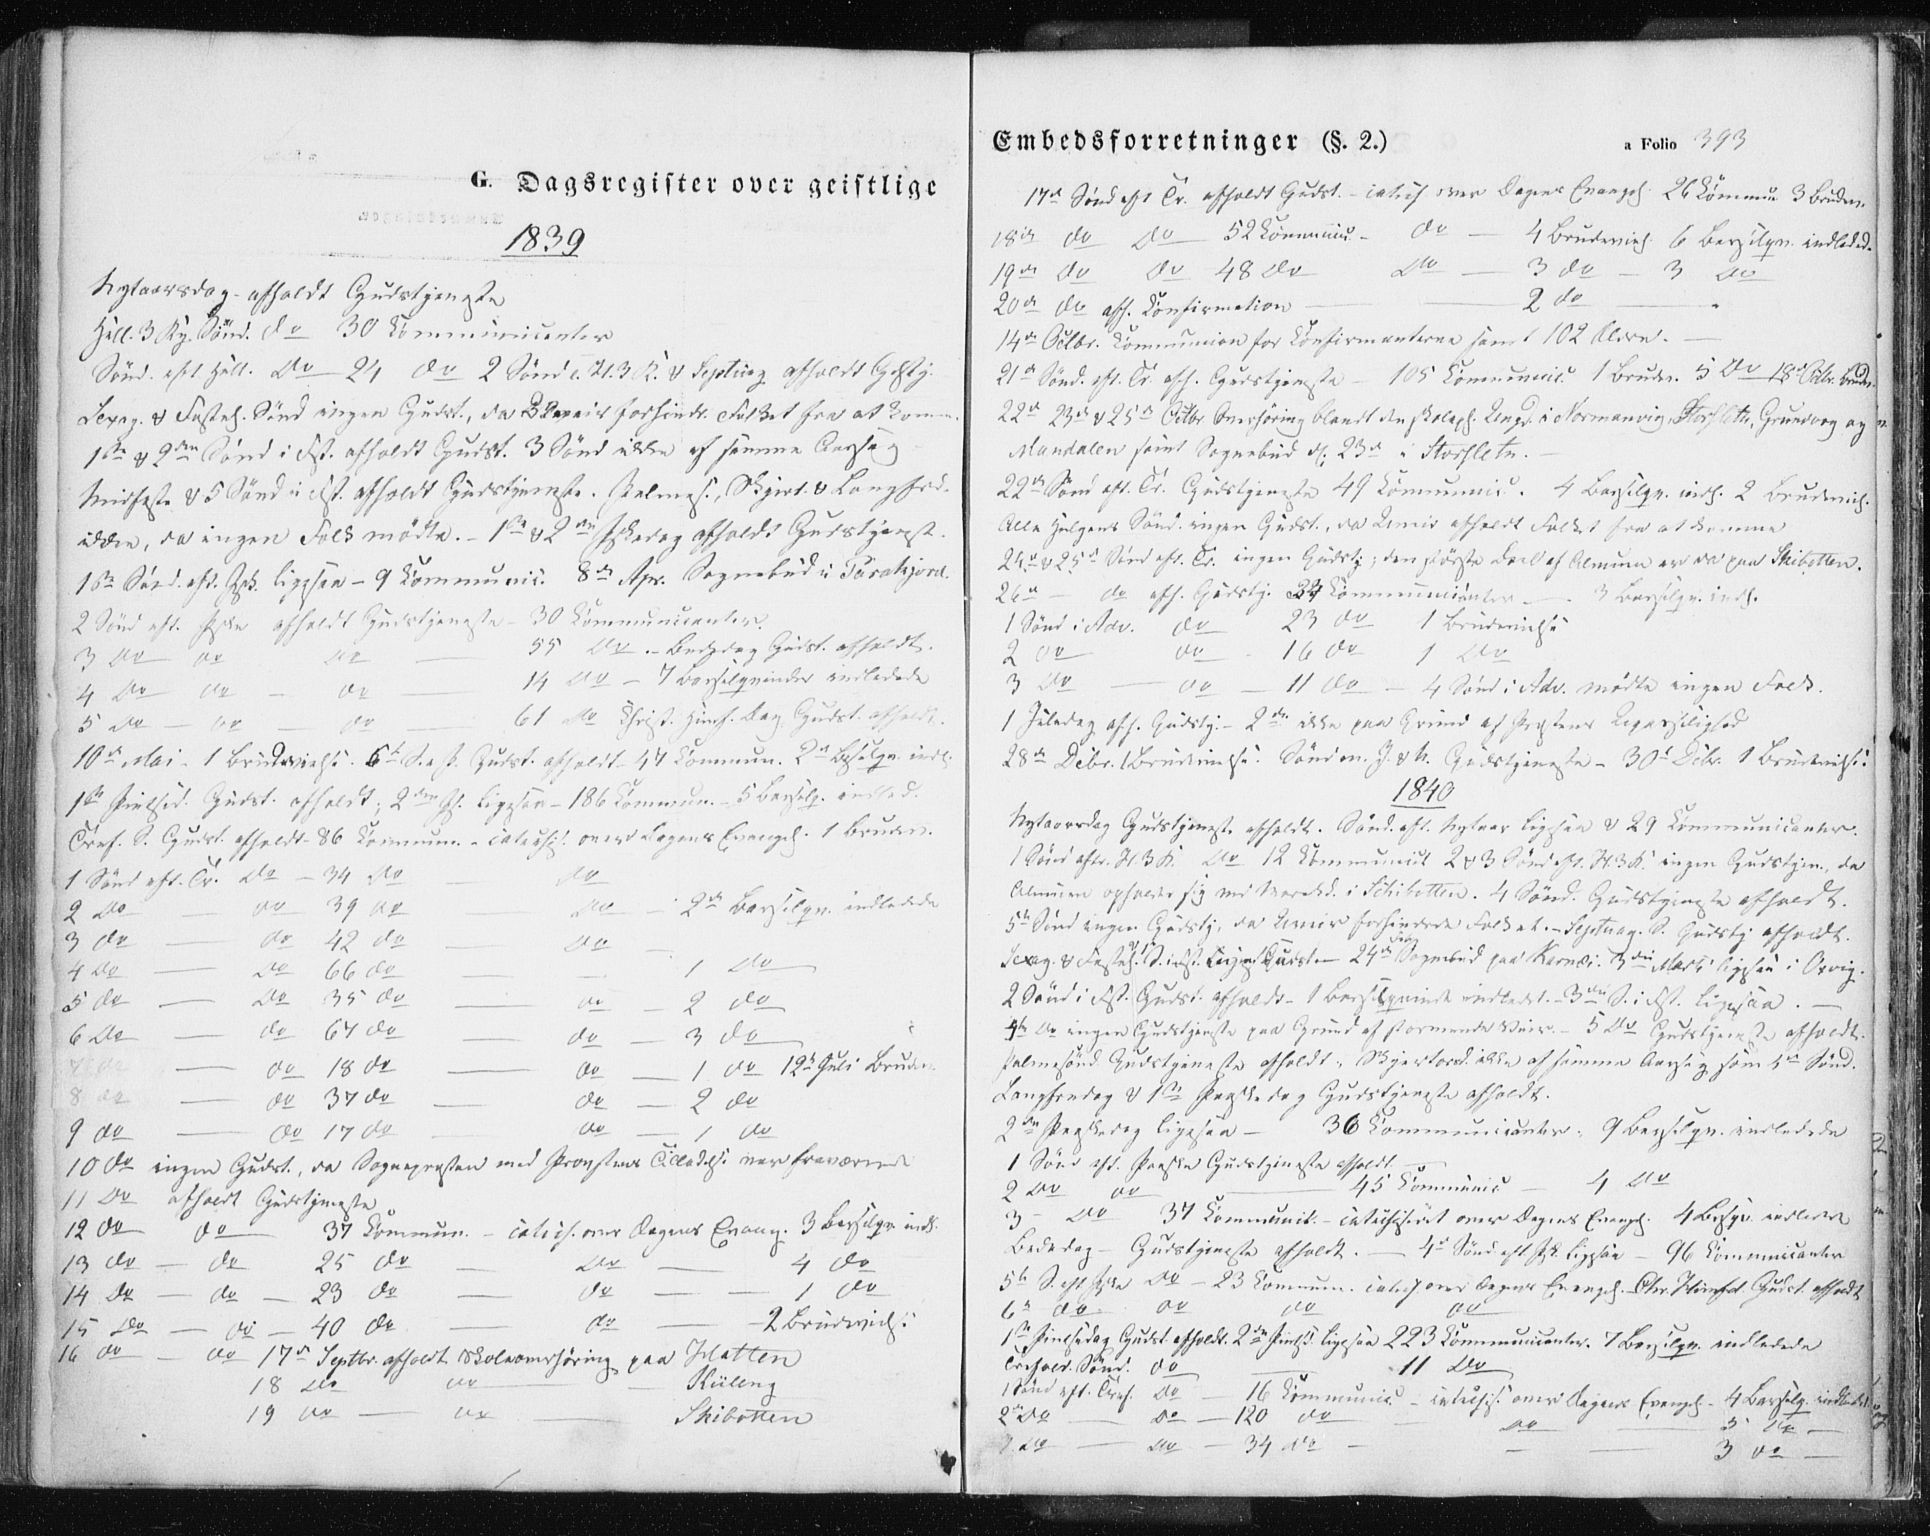 G. Dagsregister over geistlige
1839
Nytaarsdag afholdt Gudstjeneste
Hell. 3 Kg. Sønd. do 30 Kommunicanter
Sønd. eft Hell. do 24 do 2 Sønd e. H. 3 K. & Septuag afholdt Gdstj.
Sexag. & Fasteh. Sønd ingen Gudst., da Uveir forhindr. Folket fra at komm.
1ste & 2den Sønd i Fst. afholdt Gudst. 3 Sønd ikke af samme Aarsag
Midfaste & 5 Sønd i Fst. afholdt Gudstjeneste. Palmes., Skjert. & Langfrd.
ikke, da ingen Folk mødte. - 1ste & 2den Pskedag afholdt Gudstjenest.
1ste Sønd. eft. Psk. ligesaa - 9 Kommunic. 8de Apr. Sognebud i
2 Sønd eft. Pske afholdt Gudstjeneste - 30 Kommunicanter.
3 do do do 55 do. - Bededag Gudst. afholdt.
4 do do - do 14 do - 7 Barselqvinder indledede
5 do - do - do 61 do Christ. Himf. Dag Gudst. afholdt.
10de Mai - 1 Brudevielse. 6te S. e. P. Gudst. afholdt - 47 Kommun. 2de Bslqv. indl.
1ste Pintsed. Gudst. afholdt; 2den P. ligesaa - 186 Kommun. - 5 Barselq. indled.
Tref. S. Gudst. afholdt - 86 Kommun. - catechis. over Dagens Evangel. 1 Brudev.
1 Sønd eft. Tr. do - 34 do - do
2 do do 39 do do - 2de Barselqv. indledede
3 do - do 42 do - do -
4 do do 66 do - 1 do
5 do - do 35 do - do - 2 do
6 do - do 67 do do - 3 do
7 do - do 18 do - do - 1 do 12te Juli Brudev.
8 do - do 37 do - do - 2 do
9 do - do 17 do - do - 1 do
10 do ingen Gudst., da Sognepresten med Provstens Tilladelse var fraværende
11 do afholdt Gudstjeneste
12 do do 37 Kommun. - catech. over Dagens Evang. 3 Barselqv. indl.
13 do - do 25 do - do - 4 do
14 do - do - 23 do - do - - 1 do
15 do - do - 40 do - do - 2 Brudviels:
16 do - do 17de Septbr. afholdt Skoleoverhøring paa Hatten
18 do do - Küleng
19 do - do - Skibotten
Embedsforretninger (§. 2.)
a Folio 393
17de Sønd eft Tr. afholdt Gudst. - catech over Dagens Evangel. 26 Kommun 3 Brudev.
18de do do 52 Kommunic. - do - 4 Brudeviels. 6 Barselqv. indleded.
19de do do 48 do do - 3 do - 3 do
20de do afh. Konfirmation - 2 do -
14de Octbr. Kommunion for Konfirmanterne samt 102 Eldre. -
21de Sønd. eft. Tr. afh. Gudstjeneste - 105 Kommunic. 1 Brudev. 5 do 18de Octbr. Brudev.
22de 23de & 25de Octbr Overhøring blandt den skolepl. Ungd. i Normanvig, Storslette, Grundvog og
Mandalen samt Sognebud d. 23de i Storslette. -
22de Sønd eft. Tr. Gudstjeneste 49 Kommunic. 4 Barselqv. indl. 2 Brudeviels.
Alle Helgens Sønd. ingen Gudst., da Uveir afholdt Folket fra at komme
24de & 25de Sønd eft. Tr. ingen Gudstj; den største Deel af Almuen er da paa Skibotten.
26de - do afh. Gudstj. 24 Kommunicanter - 3 Barselqv. indl.
1 Sønd i Adv. do 23 do 1 Brudevielse
2 do do - 16 do 1 do
3 do - do - 11 do - 4 Sønd i Adv. mødte ingen Folk.
1 Juledag afh. Gudstj. - 2den ikke paa Grund af Prestens Upasselighed
28de Decbr. 1 Brudevielse. Sønd m. J. & N. Gudstjeneste - 30te Decbr. 1 Brudevielse:
1840
Nytaarsdag Gudstjeneste afholdt. Sønd. eft. Nytaar ligesaa & 29 Kommunicanter.
1 Sønd efter H 3 K. do 12 Kommunicat 2 & 3 Sønd eft. H 3 K. ingen Gudstjen., da
Almuen opholder sig ved Marked. i Schibotten. 4 Sønd. Gudstjeneste afholdt.
5te Sønd ingen Gudstj, da Uveir forhindrede Folket. - Septuag. S. Gudstj afholdt.
Sexag. & Fasteh. S. i Fst. ingen Gudst. - 24de Febr Sognebud paa Karnæs. 3die Marts ligesaa i Orvig.
2 Sønd i Fst. Gudst. afholdt - 1 Barselqvinde indledet. - 3die S. i Fst. ligesaa. -
4de do ingen Gudstjeneste paa Grund af stormende Veir. - 5 do Gudstjeneste afholdt.
Palmesønd Gudstjeneste afholdt; Skjertorsd. ikke af samme Aarsag som 4de Sønd.
Langfredag & 1ste Paaskedag Gudstjeneste afholdt.
2den Paaskedag ligesaa - 36 Kommunicanter; 9 Barselqv. indledede
1 Sønd eft. Paaske Gudstjeneste afholdt -
2 do do - 45 Kommunic - 4 do
3 - do 37 Kommunic. - catechiseret over Dagens Evangel. 4 Barsqv. indledet
Bededag - Gudstjeneste afholdt. - 4de Sønd eft Psk. ligesaa - 96 Kommunicanter
5te S. eft Pske do - 23 Kommun. catech over Dagens Evangel. Chr. Himfrt Gudst. afholdt
6te do - do do do
1ste Pintsedag Gudst afholdt. 2den Pintsd. ligesaa 223 Kommunicanter. 7 Barselqv. indledede
Trefold. Sønd. do - 11 do
1 Sønd eft. Tref. do - 16 Kommunic - catechis: over Dagens Evangel. - 4 Barselq. indledet
2de do - do - 120 do - do - 5 do -
3 do - do - 34 do - - 3 do -